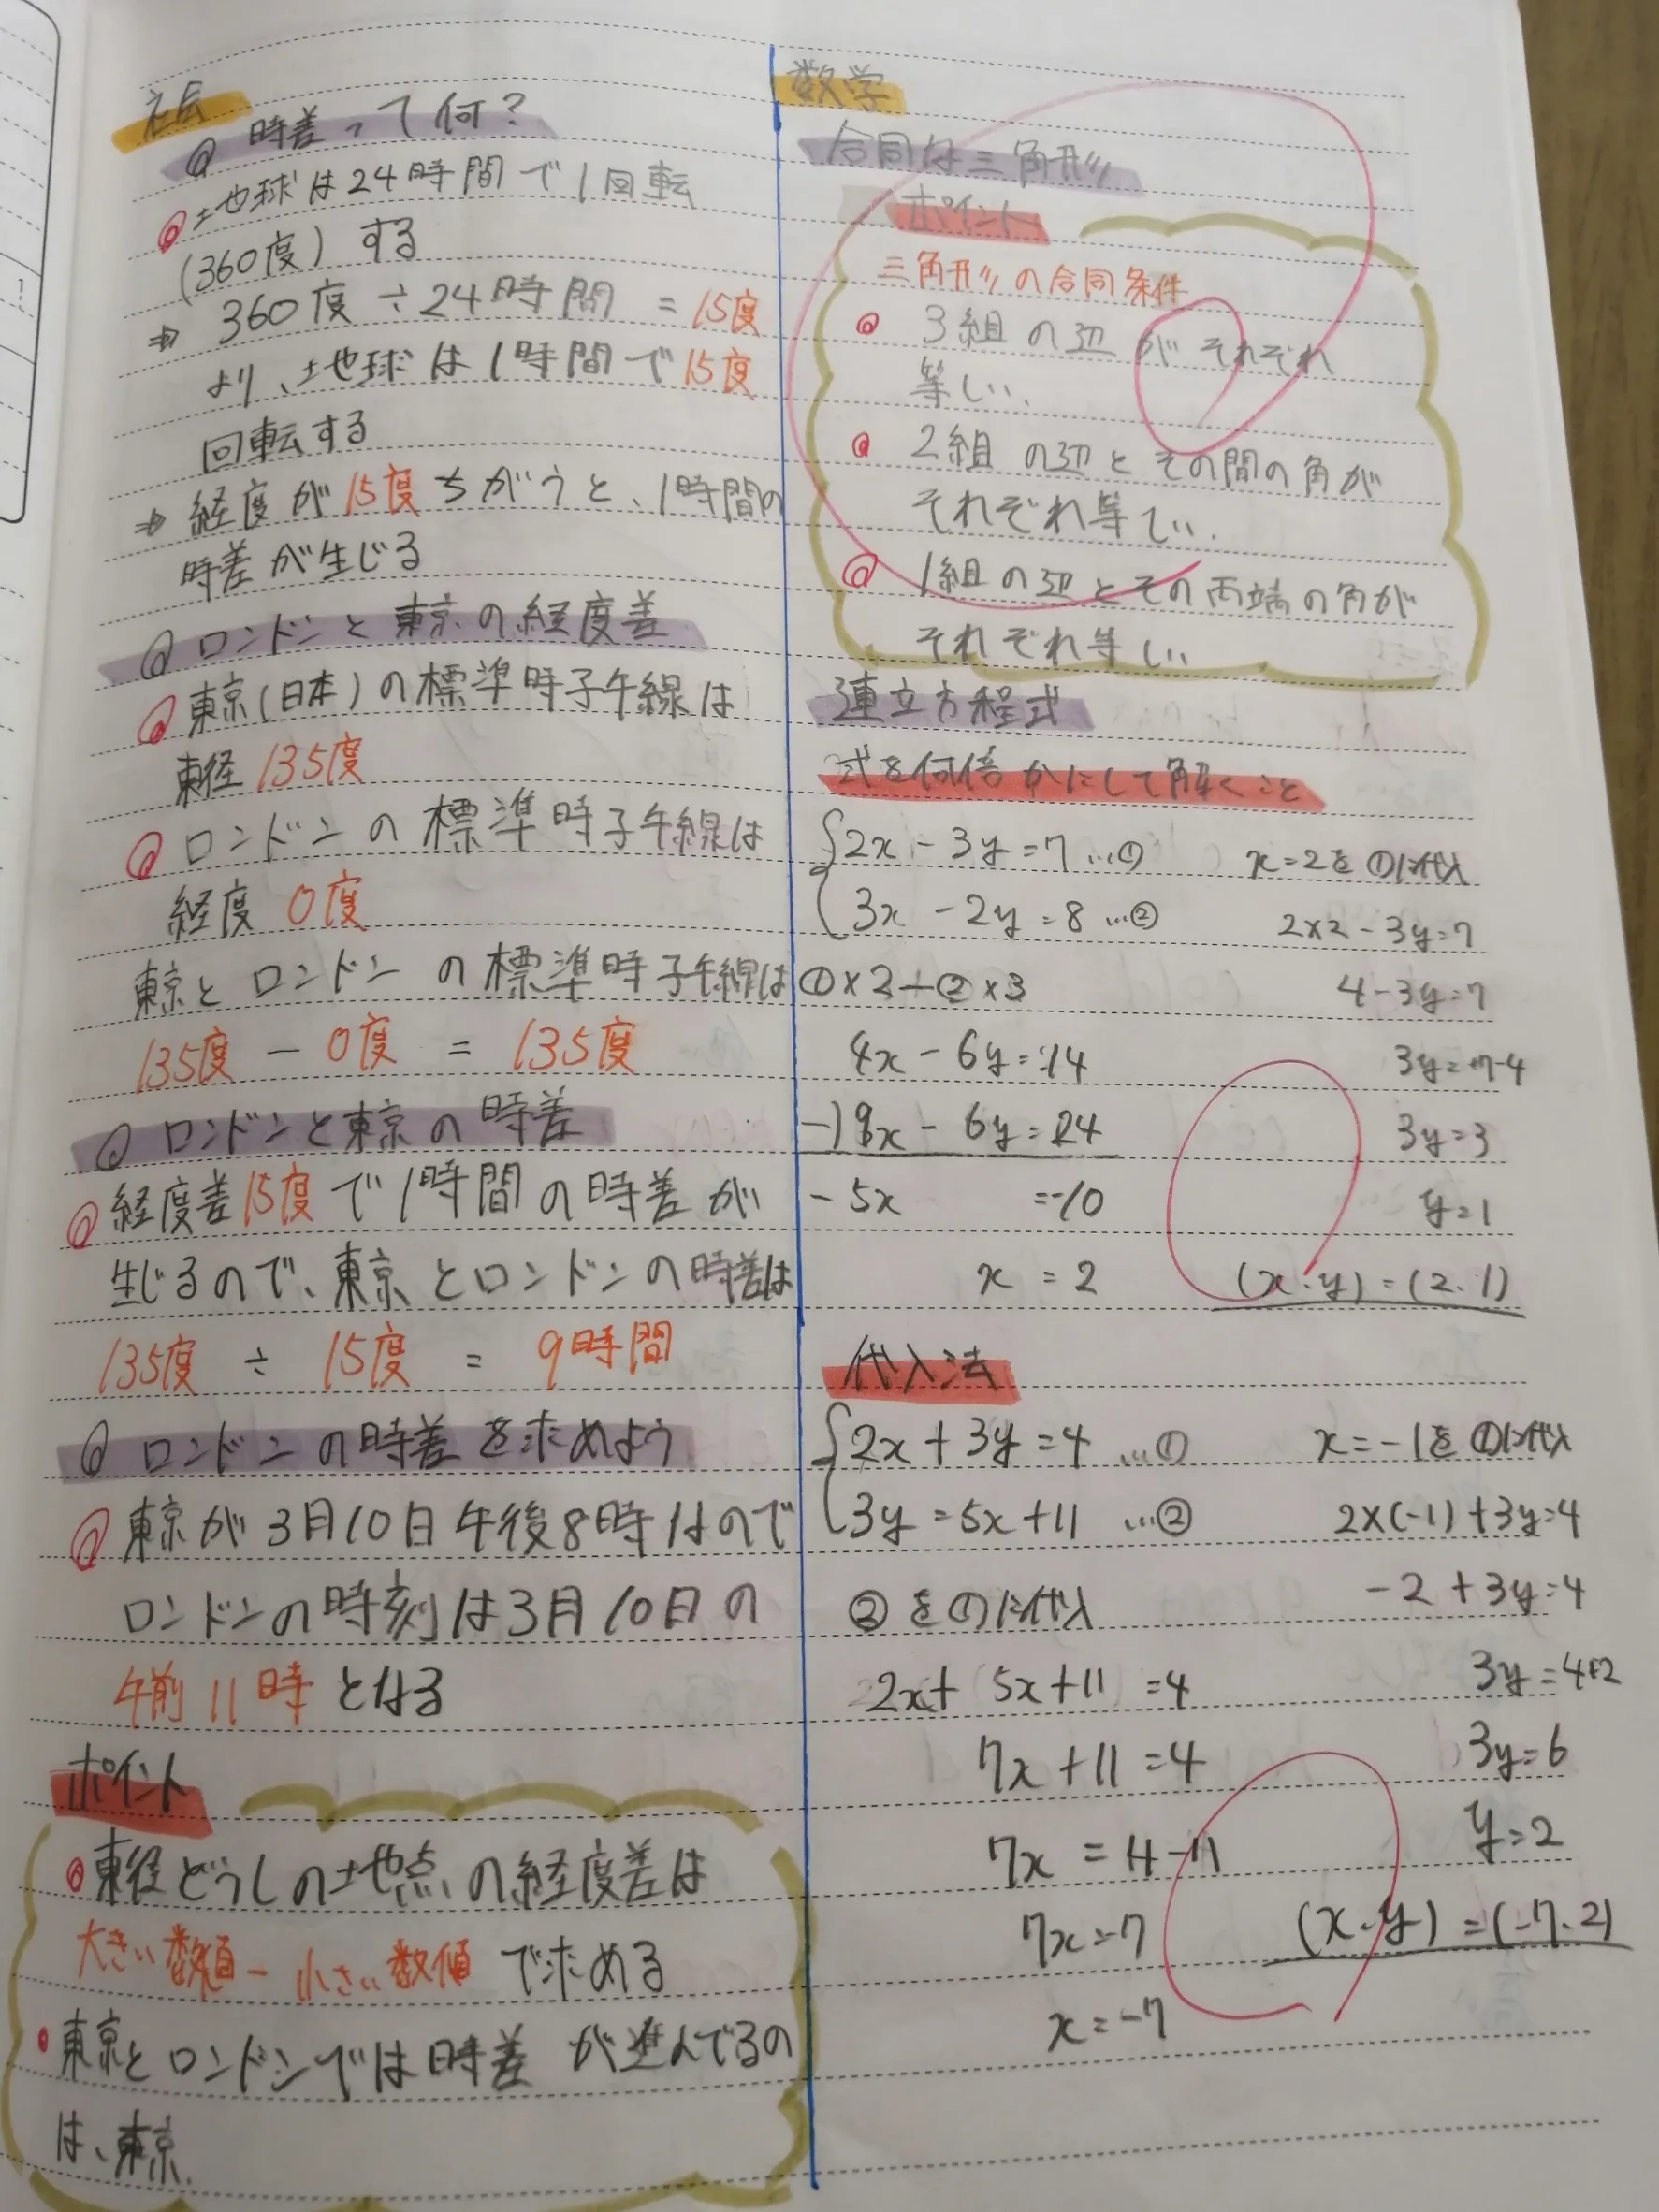 社会
時差って何?
地球は24時間で1回転
(360度)する
⇒ 360度÷24時間 = 15度
より、地球は1時間で15度
回転する
⇒ 経度が15度ちがうと、1時間の
時差が生じる
ロンドンと東京の経度差
東京(日本)の標準時子午線は
東経135度
ロンドンの標準時子午線は
経度0度
東京とロンドンの標準時子午線は
135度 − 0度 = 135度
ロンドンと東京の時差
経度差15度で1時間の時差が
生じるので、東京とロンドンの時差は
135度 ÷ 15度 = 9時間
ロンドンの時差を求めよう
東京が3月10日午後8時なので
ロンドンの時刻は3月10日の
午前11時となる
ポイント
東径どうしの土地点の経度差は
大きい数値 − 小さい数値 で求める
東京とロンドンでは時差が進んでるの
は、東京.
数学
合同な三角形
ポイント
三角形の合同条件
3組の辺がそれぞれ
等しい.
2組の辺とその間の角が
それぞれ等しい.
1組の辺とその両端の角が
それぞれ等しい
連立方程式
式を何倍かにして解くこと
2x − 3y = 7 …①
3x − 2y = 8 …②
4x − 6y = 14
−) 9x − 6y = 24
−5x = −10
x = 2
x=2を①に代入
2×2 − 3y = 7
4 − 3y = 7
3y = 3
y = 1
(x.y) = (2.1)
代入法
2x + 3y = 4 …①
3y = 5x + 11 …②
②を①に代入
2x + (5x + 11) = 4
7x + 11 = 4
7x = 4 − 11
7x = −7
x = −7
x = −1を①に代入
2×(−1) + 3y = 4
−2 + 3y = 4
3y = 4+2
3y = 6
y = 2
(x.y) = (−7.2)